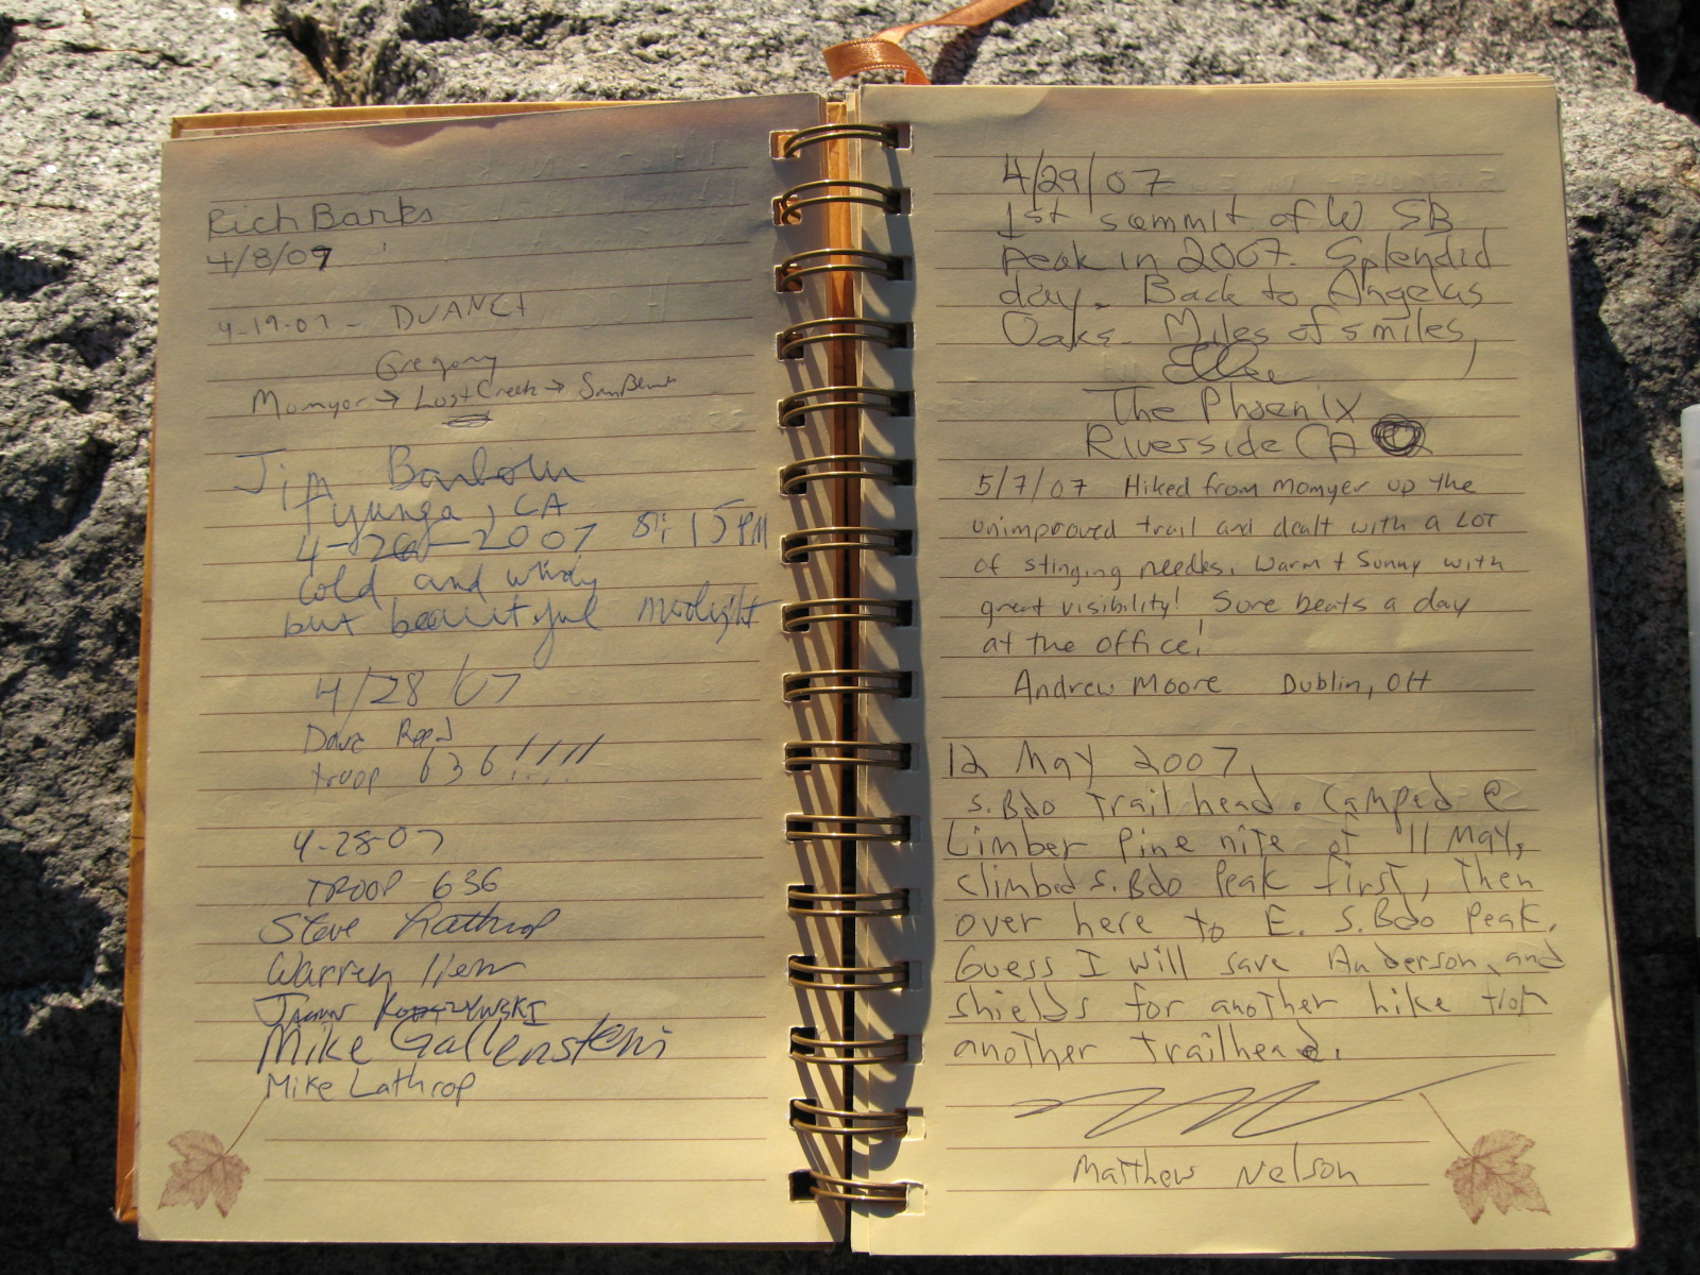 Rich Banks
4/8/07
4-19-07 -
Gregory
Momyer → Lost Creek →
Jim Barbour
Tujunga, CA
4-20-2007 8:15 PM
cold and windy
but beautiful
4/28/07
Dave Reed
troop 636!!!!!
4-28-07
TROOP 636
Steve Lathrop
Warren
Mike Gallenstein
Mike Lathrop
4/29/07
1st summit of W SB
Peak in 2007. Splendid
day. Back to Angelus
Oaks. Miles of smiles,
The Phoenix
Riverside CA
5/7/07 Hiked from Momyer up the
unimproved trail and dealt with a LOT
of stinging needles. Warm + Sunny with
great visibility! Sure beats a day
at the office!
Andrew Moore Dublin, OH
12 May 2007,
S.Bdo Trailhead. Camped @
Limber Pine nite of 11 May,
climbed S.Bdo Peak first, Then
over here to E. S.Bdo Peak.
Guess I will save Anderson and
Shields for another hike from
another trailhead.
Matthew Nelson